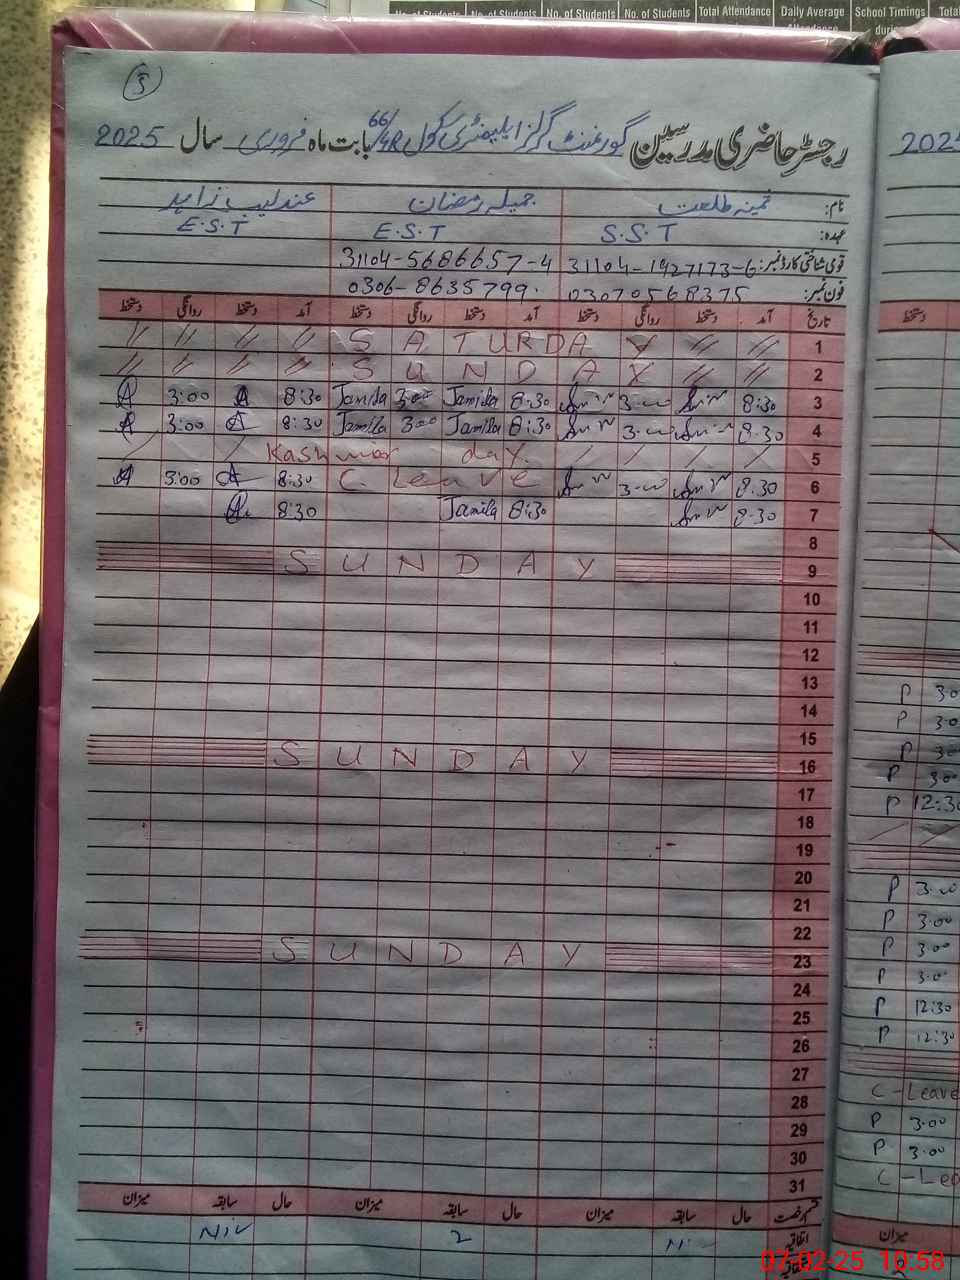 No. of Students No. of Students No. of Students No. of Students Total Attendance Daily Average Attendance School Timings
3
رجسٹر حاضری مدرسین گورنمنٹ گرلز ایلیمنٹری سکول 66/4R بابت ماہ فروری سال 2025
نام: ثمینہ طلعت جمیلہ رمضان عندلیب زاہد
عہدہ: S.S.T E.S.T E.S.T
قومی شناختی کارڈ نمبر: 31104-1927173-6 31104-5686657-4
فون نمبر: 03070568375 0306-8635799
تاریخ آمد دستخط روانگی دستخط آمد دستخط روانگی دستخط آمد دستخط روانگی دستخط
1 SATURDAY
2 SUNDAY
3 8:30 3:00 8:30 Jamila 3:00 Jamila 8:30 3:00
4 8:30 3:00 8:30 Jamila 3:00 Jamila 8:30 3:00
5 Kashmir day
6 8:30 3:00 C. Leave 8:30 3:00
7 8:30 8:30 Jamila 8:30
8
9 SUNDAY
10
11
12
13
14
15
16 SUNDAY
17
18
19
20
21
22
23 SUNDAY
24
25
26
27
28
29
30
31
قسم رخصت حال سابقہ میزان حال سابقہ میزان حال سابقہ میزان
اتفاقیہ 2 Nil
2025
دستخط
P 30
P 30
P 30
P 300
P 12:30
P 3:00
P 3:00
P 3:00
P 3:0
P 12:30
P 12:30
C-Leave
P 3:00
P 3:00
C-Lea
میزان
07-02-25 10:58